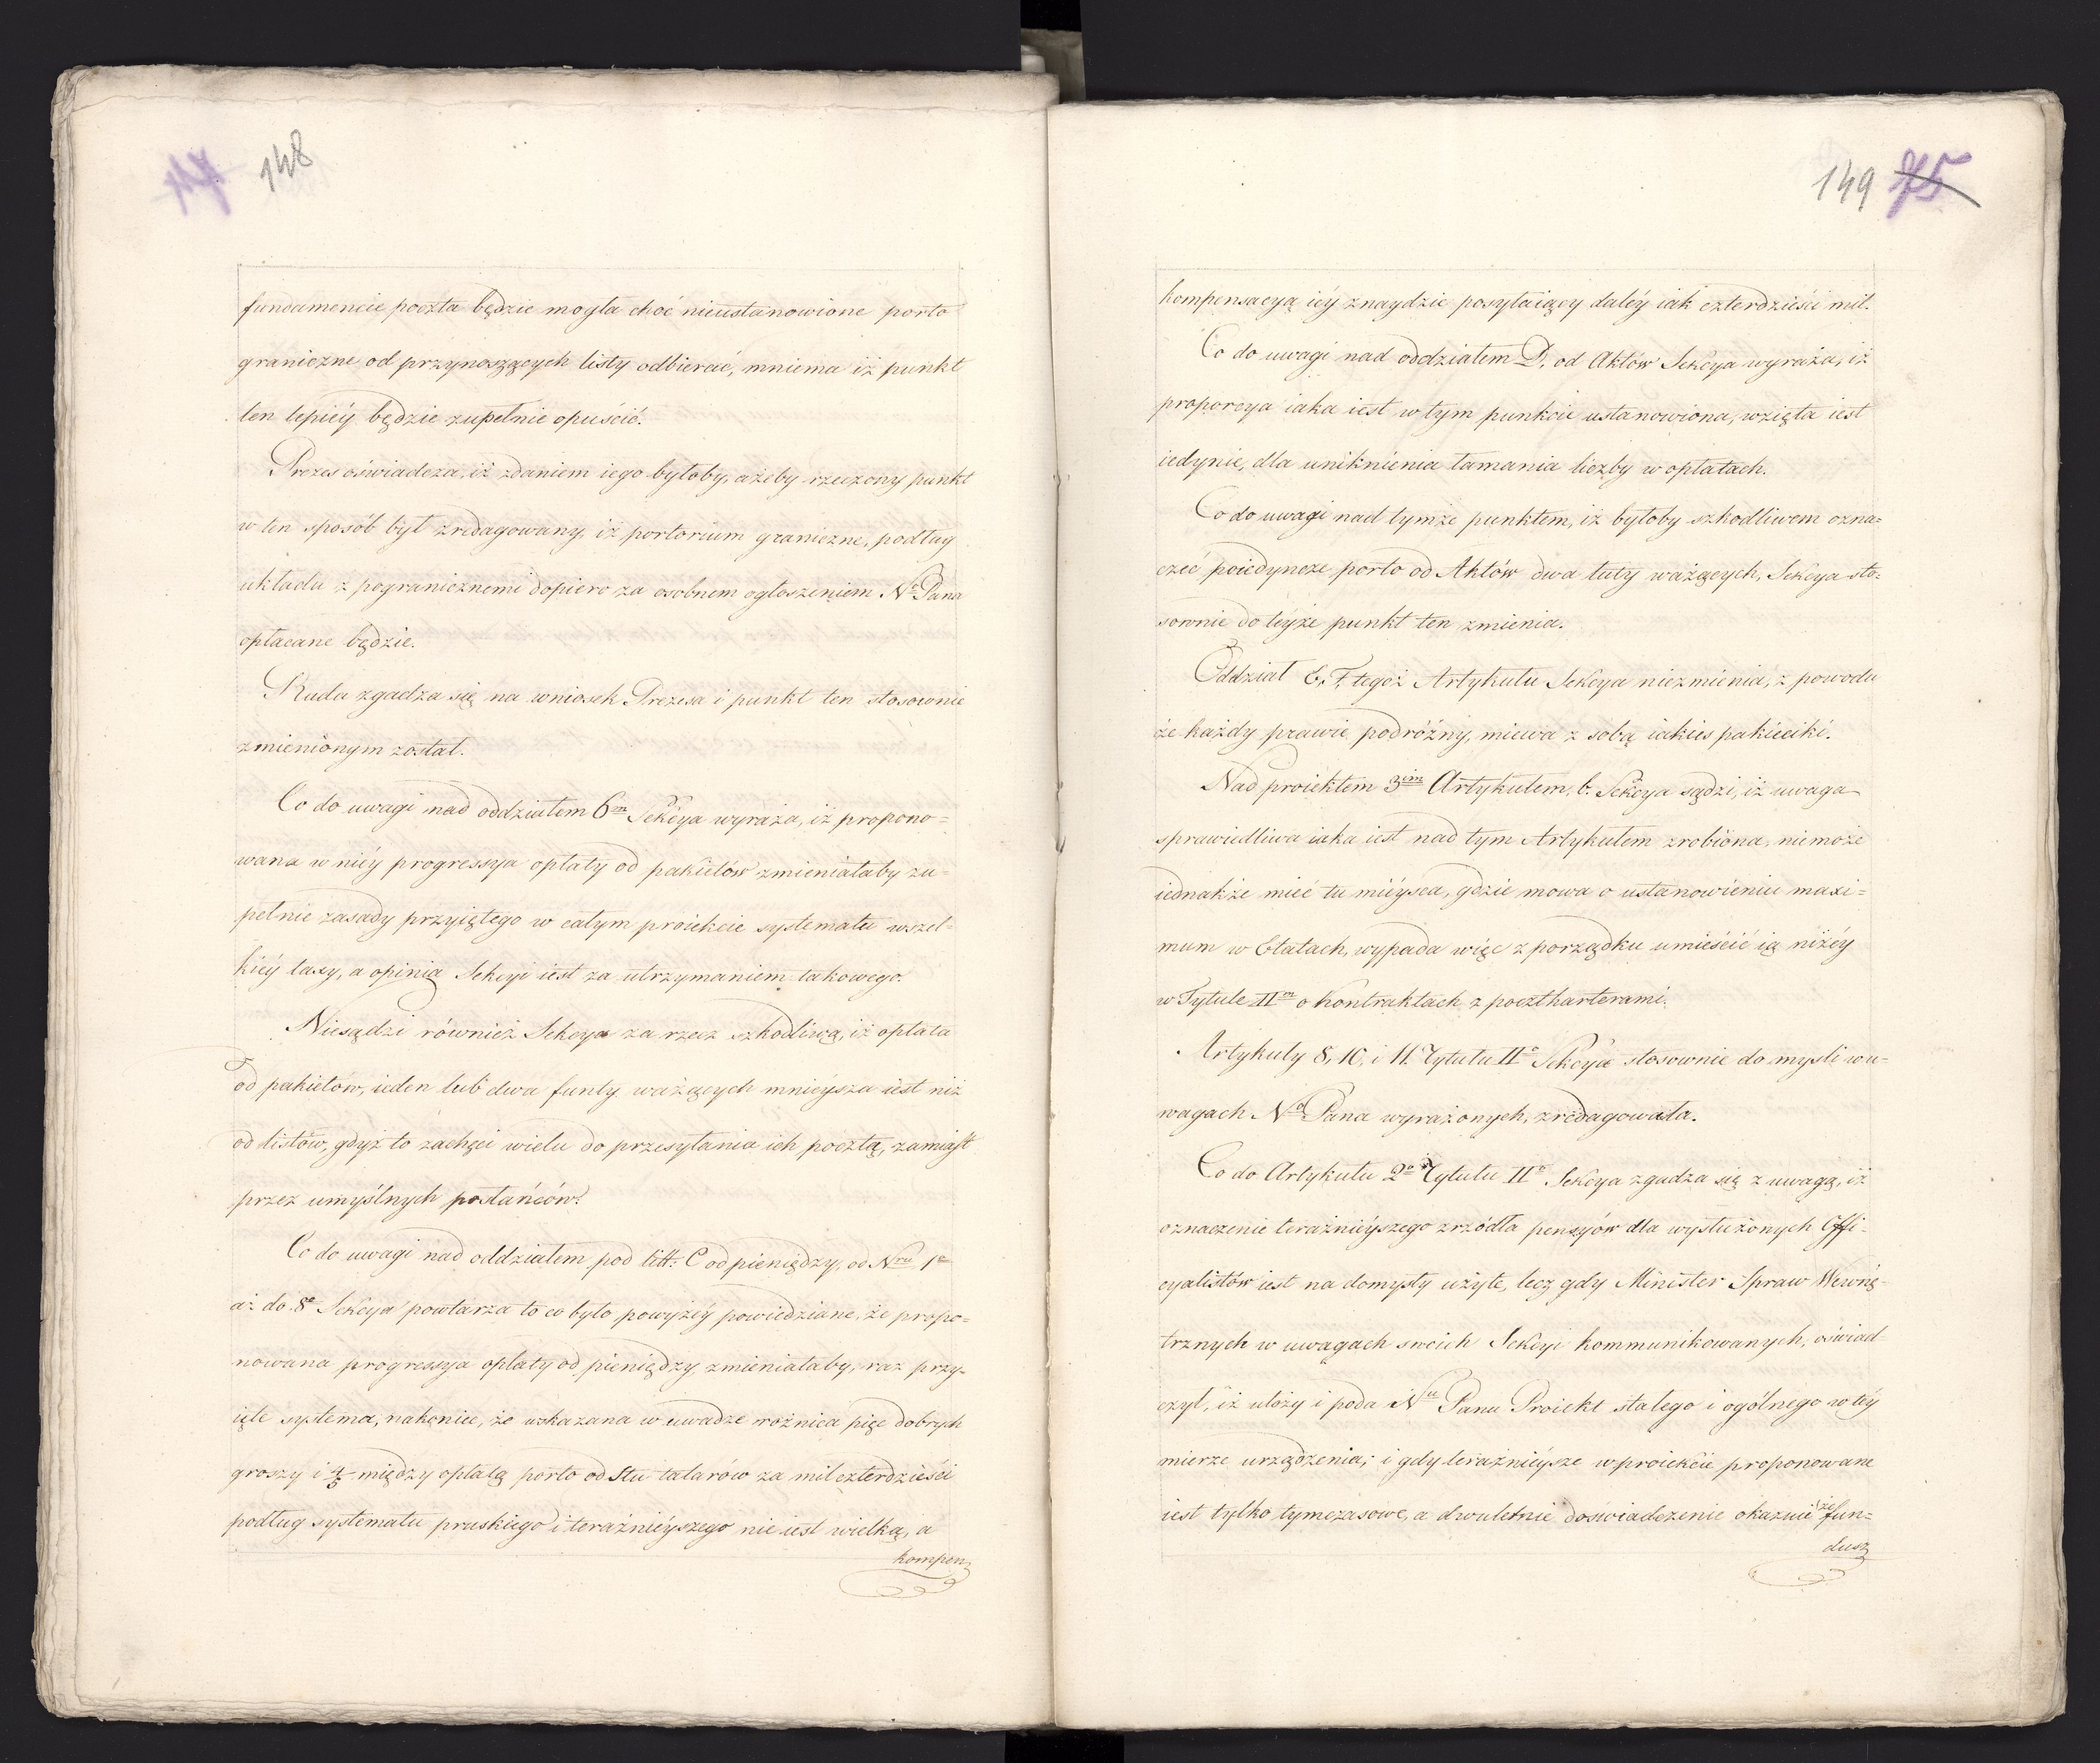 148
fundamencie poczta będzie mogła choć nieustanowione porto
graniczne od przynoszących listy odbierać, mniema iż punkt
ten lepiéy będzie zupełnie opuścić.
Prezes oświadcza, iż zdaniem iego byłoby, ażeby rzeczony punkt
w ten sposób był zredagowany, iż portorium graniczne, podług
układu z pogranicznemi dopiero za osobnem ogłoszeniem No Pana
opłacane będzie.
Rada zgadza się na wniosek Prezesa i punkt ten stosownie
zmienionym został.
Co do uwagi nad oddziałem 6m Sekcya wyraża, iż propono=
wana w niéy progressya opłaty od pakietów zmieniałaby zu=
pełnie zasady przyiętego w całym proiekcie systematu wszel=
kiéy taxy, a opinią Sekcyi iest za utrzymaniem takowego.
Niesądzi również Sekcya za rzecz szkodliwą, iż opłata
od pakietów, ieden lub dwa funty ważących mnieysza iest niż
od listów, gdyż to zachęci wielu do przesyłania ich pocztą, zamiast
przez umyślnych posłańców.
Co do uwagi nad oddziałem pod litt: C od pieniędzy, od Nru 1o
aż do 8o Sekcya powtarza to co było powyżéy powiedziane, że propo=
nowana progressya opłaty od pieniędzy, zmieniałaby, raz przy=
ięte systema, nakoniec, że wskazana w uwadze roźnica pięc dobrych
groszy i 4/5 między opłatą porto od Stu talarów za mil czterdzieści
podług systematu pruskiego i teraźnieyszego nie iest wielką, a
kompen
149 75
kompensacyą iéy znaydzie posyłaiący daléy iak czterdzieści mil.
Co do uwagi nad oddziałem D, od Aktów Sekcya wyraża, iż
proporcya iaka iest w tym punkcie ustanowiona, wzięta iest
iedynie, dla uniknienia łamania liczby w opłatach.
Co do uwagi nad tymże punktem, iż byłoby szkodliwem ozna=
czać poiedyncze porto od Aktów dwa łuty ważących, Sekcya sto=
sownie do téyże punkt ten zmienia.
Oddział E, F, tegoż Artykułu Sekcya niezmienia, z powodu
że każdy prawie podróżny, miewa z sobą iakieś pakieciki.
Nad proiektem 3im Artykułem, b. Sekcya sądzi, iż uwaga
sprawiedliwa iaka iest nad tym Artykułem zrobiona, niemoże
iednakże mieć tu miéysca, gdzie mowa o ustanowieniu maxi=
mum w Etatach, wypada więc z porządku umieścić ią niżéy
w Tytule IIm o Kontraktach z poczthalterami.
Artykuły 8, 10, i 11. Tytułu IIo Sekcya stosownie do mysli w u=
wagach No Pana wyrażonych, zredagowała.
Co do Artykułu 2o Tytułu IIo Sekcya zgadza się z uwagą, iż
oznaczenie teraźnieyszego zrzódła pensyów dla wysłużonych Offi=
cyalistów iest na domysły użyte, lecz gdy Minister Spraw Wewnę=
trznych w uwagach swoich Sekcyi kommunikowanych, oświad=
czył, iż ułoży i poda Nu Panu Proiekt stałego i ogólnego w téy
mierze urządzenia; i gdy teraźnieysze w proiekcie proponowane
iest tylko tymczasowe, a dwuletnie doświadczenie okazuie że fun=
dusz